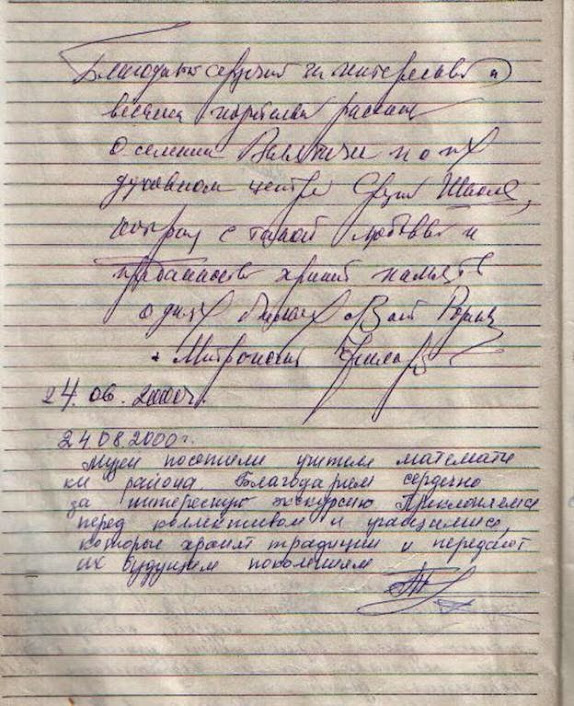 Благодарю сердечно за интересный и
весьма подробный рассказ
о селении и о их
духовном центре Школе,
которая с такой любовью и
преданностью хранит память
о своих Родины
+ Митрополит
24.06.2000г.
24 08 2000г.
Музей посетили учителя математи
ки района Благодарим сердечно
за интересную экскурсию Преклоняемся
перед коллективом и учащимися,
которые хранят традиции и передают
их будущем поколениям